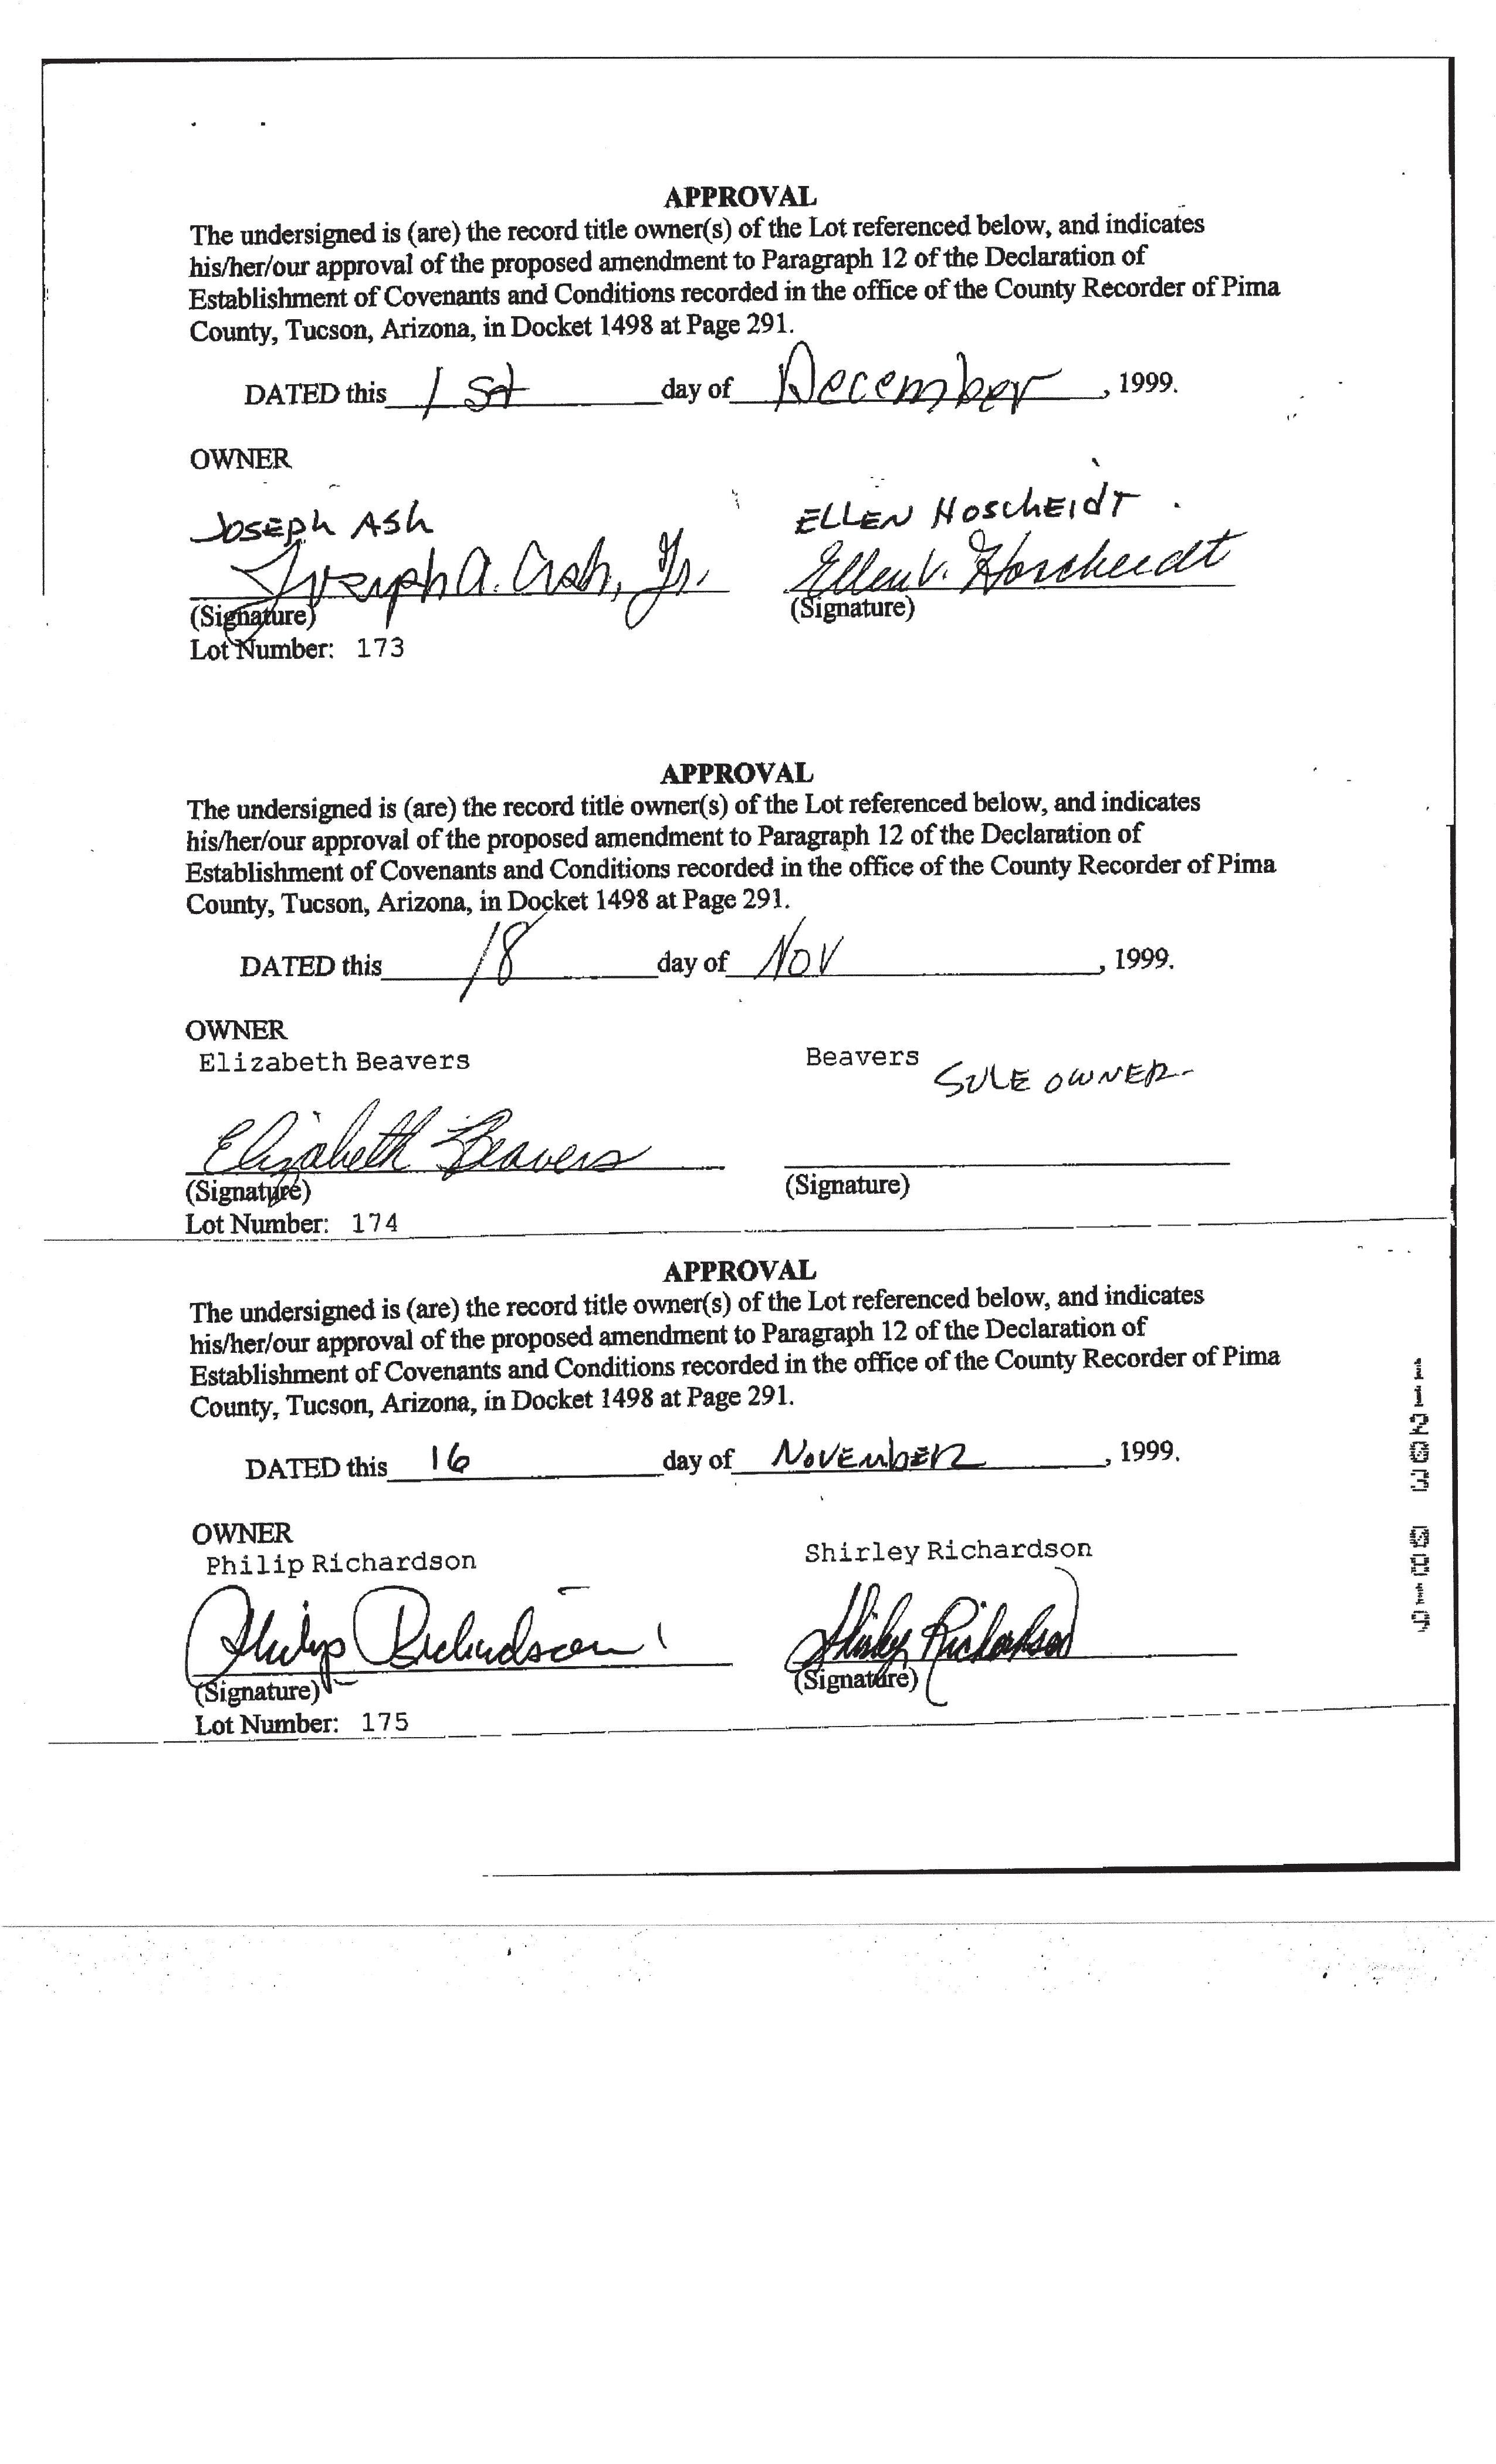 APPROVAL
The undersigned is (are) the record title owner(s) of the Lot referenced below, and indicates
his/her/our approval of the proposed amendment to Paragraph 12 of the Declaration of
Establishment of Covenants and Conditions recorded in the office of the County Recorder of Pima
County, Tucson, Arizona, in Docket 1498 at Page 291.
DATED this 1st day of December, 1999.
OWNER
JOSEPH ASH ELLEN HOSCHEIDT
Joseph A. Ash, Jr. Ellen V. Hoscheidt
(Signature) (Signature)
Lot Number: 173
APPROVAL
The undersigned is (are) the record title owner(s) of the Lot referenced below, and indicates
his/her/our approval of the proposed amendment to Paragraph 12 of the Declaration of
Establishment of Covenants and Conditions recorded in the office of the County Recorder of Pima
County, Tucson, Arizona, in Docket 1498 at Page 291.
DATED this 18 day of Nov, 1999.
OWNER
Elizabeth Beavers Beavers SOLE OWNER-
Elizabeth Beavers
(Signature) (Signature)
Lot Number: 174
APPROVAL
The undersigned is (are) the record title owner(s) of the Lot referenced below, and indicates
his/her/our approval of the proposed amendment to Paragraph 12 of the Declaration of
Establishment of Covenants and Conditions recorded in the office of the County Recorder of Pima
County, Tucson, Arizona, in Docket 1498 at Page 291.
DATED this 16 day of NOVEMBER, 1999.
OWNER
Philip Richardson Shirley Richardson
Philip Richardson Shirley Richardson
(Signature) (Signature)
Lot Number: 175